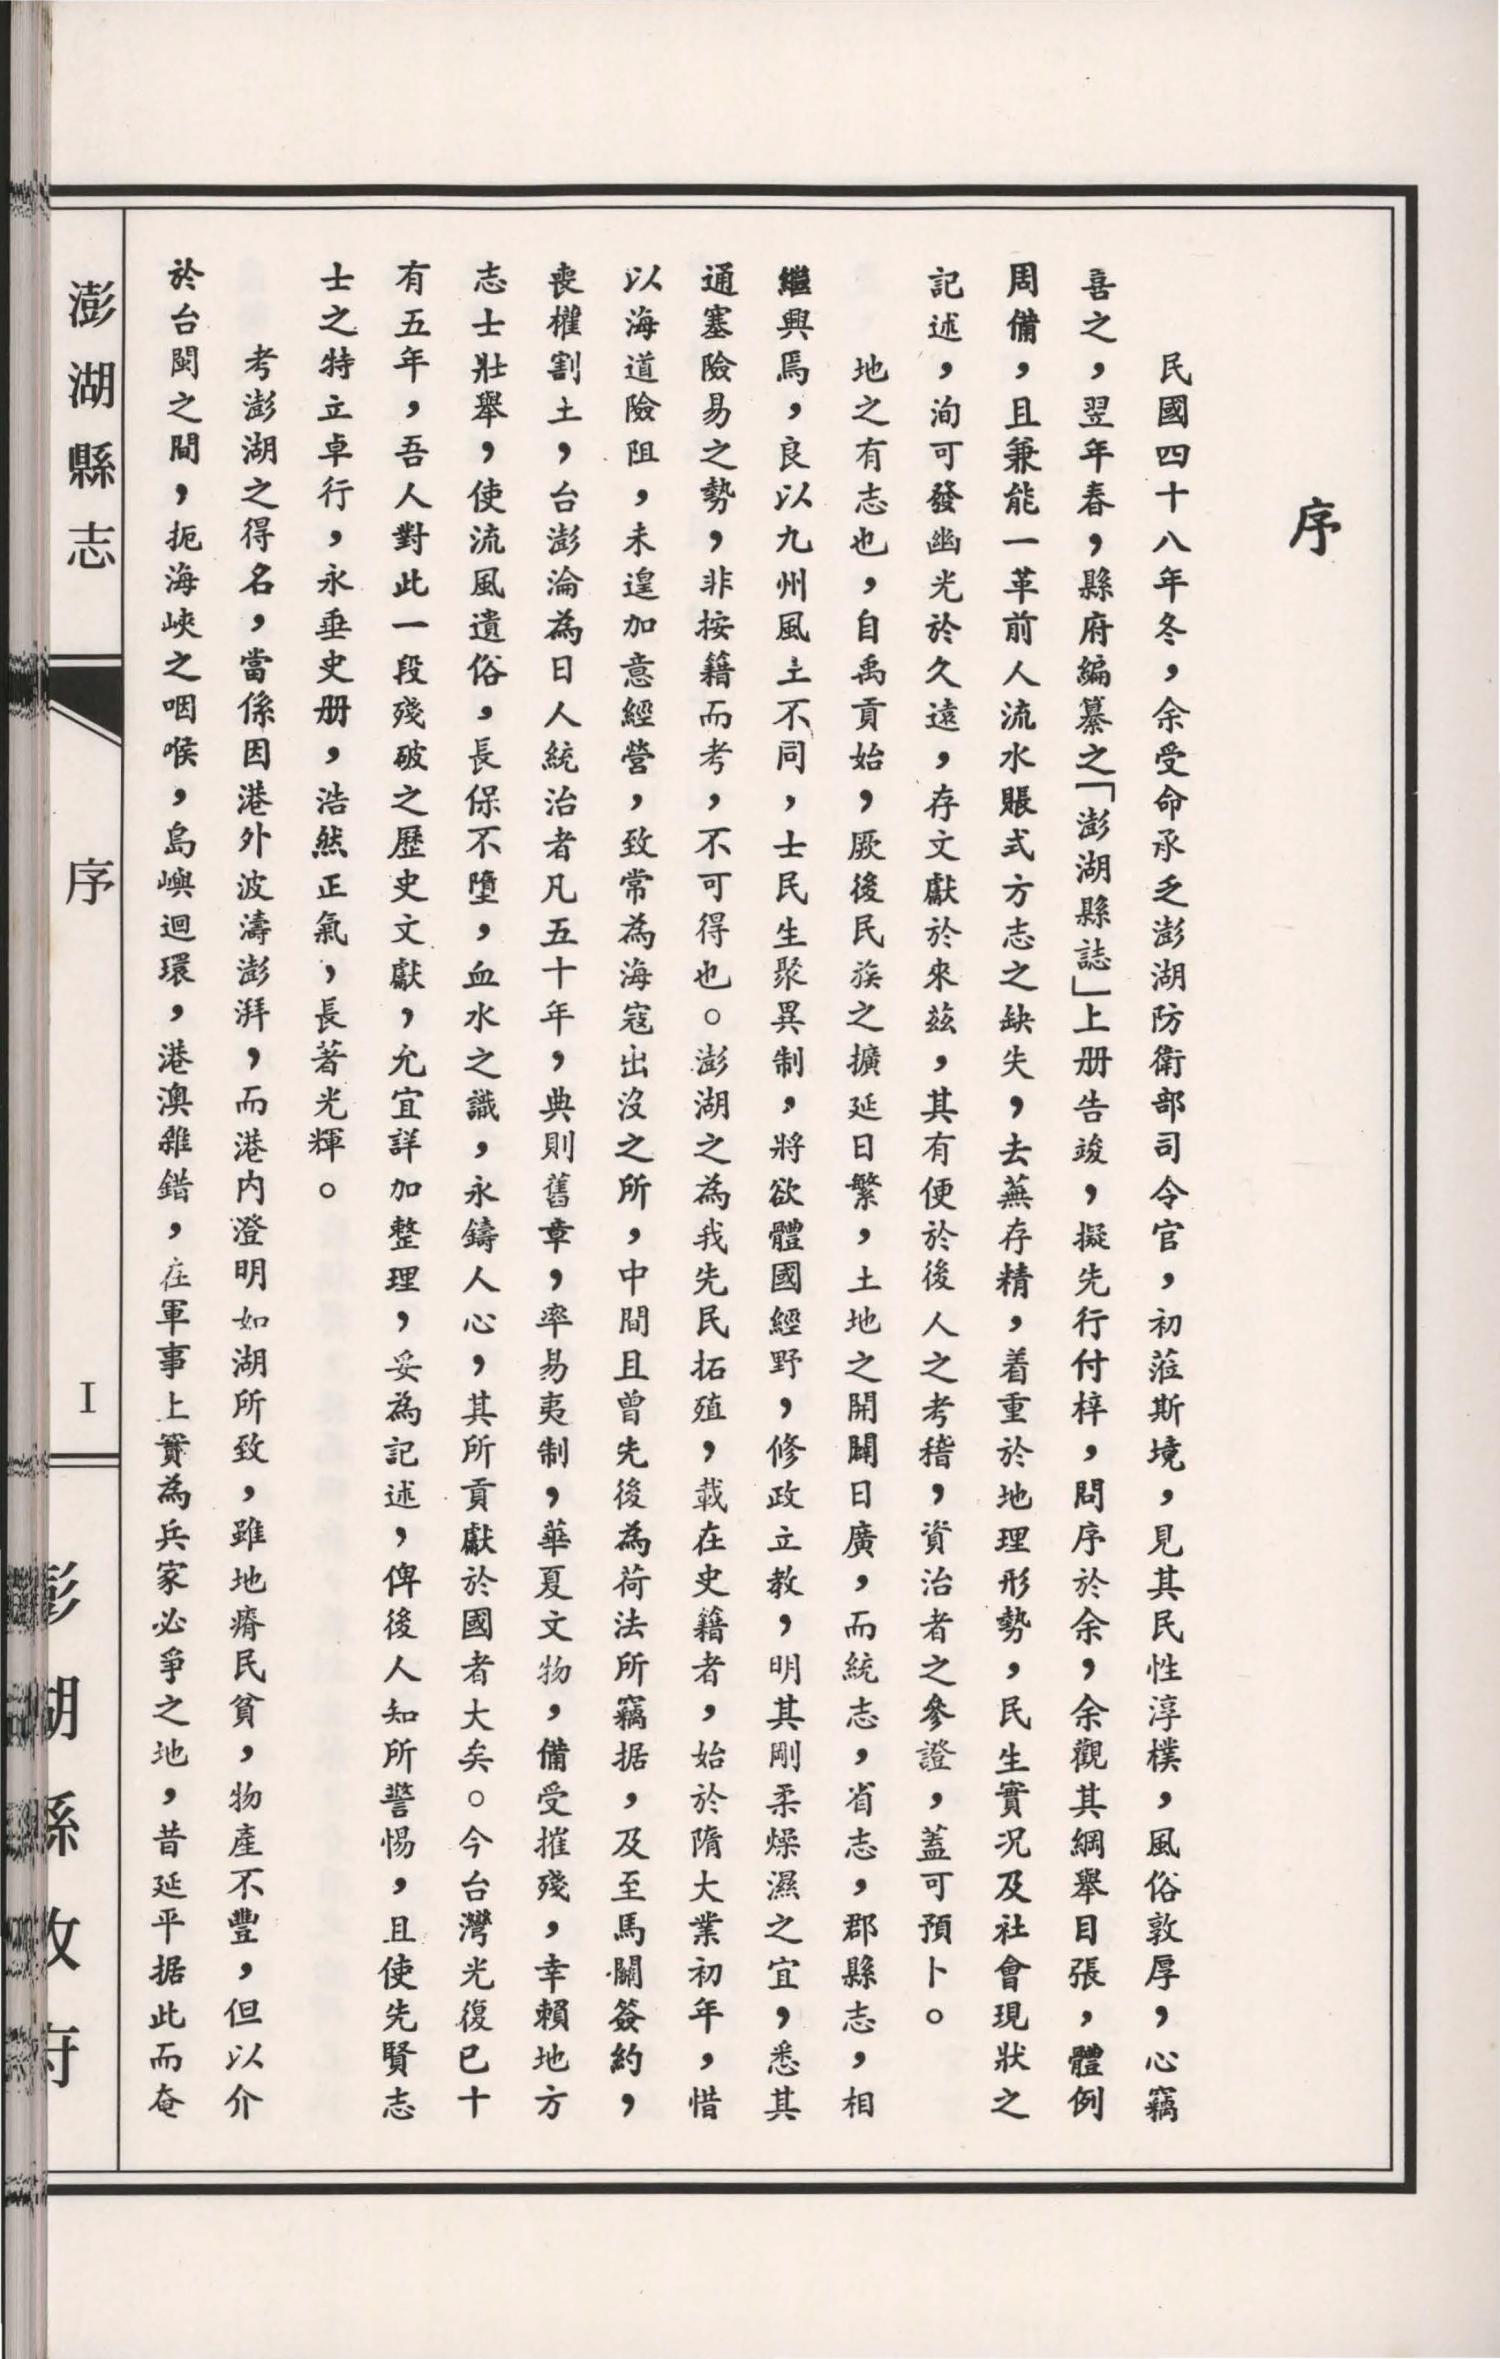 序
民國四十八年冬，余受命承乏澎湖防衛部司令官，初蒞斯境，見其民性淳樸，風俗敦厚，心竊
喜之，翌年春，縣府編纂之「澎湖縣誌」上册告竣，擬先行付梓，問序於余，余觀其綱舉目張，體例
周備，且兼能一革前人流水賬式方志之缺失，去蕪存精，着重於地理形勢，民生實况及社會現狀之
記述，洵可發幽光於久遠，存文獻於來茲，其有便於後人之考稽，資治者之參證，蓋可預卜。
地之有志也，自禹貢始，厥後民族之擴延日繁，土地之開闢日廣，而統志，省志，郡縣志，相
繼興焉，良以九州風土不同，士民生聚異制，將欲體國經野，修政立教，明其剛柔燥濕之宜，悉其
通塞險易之勢，非按籍而考，不可得也。澎湖之為我先民拓殖，載在史籍者，始於隋大業初年，惜
以海道險阻，未遑加意經營，致常為海寇出沒之所，中間且曾先後為荷法所竊据，及至馬關簽約，
喪權割土，台澎淪為日人統治者凡五十年，典則舊章，率易夷制，華夏文物，備受摧殘，幸賴地方
志士壯舉，使流風遺俗，長保不墮，血水之識，永鑄人心，其所貢獻於國者大矣。今台灣光復已十
有五年，吾人對此一段殘破之歷史文獻，允宜詳加整理，妥為記述，俾後人知所警惕，且使先賢志
士之特立卓行，永垂史册，浩然正氣，長著光輝。
考澎湖之得名，當係因港外波濤澎湃，而港内澄明如湖所致，雖地瘠民貧，物產不豐，但以介
於台閩之間，扼海峽之咽喉，島嶼迴環，港澳雜錯，在軍事上實為兵家必爭之地，昔延平据此而奄
澎湖縣志
序
I
澎湖縣政府